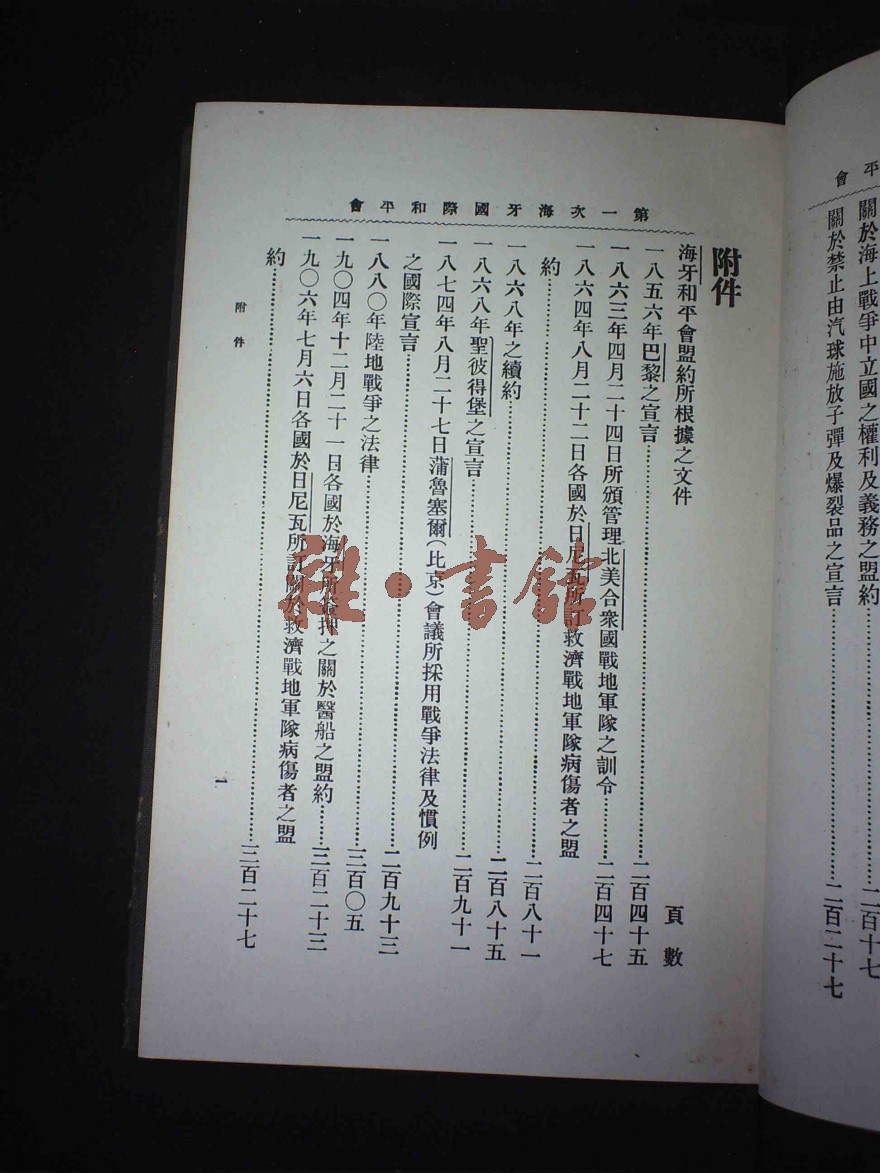 平會
關於海上戰爭中立國之權利及義務之盟約……二百十七
關於禁止由汽球施放子彈及爆裂品之宣言……二百二十七
第一次海牙國際和平會
附件
海牙和平會盟約所根據之文件
頁數
一八五六年巴黎之宣言……二百四十五
一八六三年四月二十四日所頒管理北美合衆國戰地軍隊之訓令……二百四十七
一八六四年八月二十二日各國於日尼瓦所訂救濟戰地軍隊病傷者之盟
約……二百八十一
一八六八年之續約……二百八十五
一八六八年聖彼得堡之宣言……二百九十一
一八七四年八月二十七日蒲魯塞爾(比京)會議所採用戰爭法律及慣例
之國際宣言……二百九十三
一八八〇年陸地戰爭之法律……三百〇五
一九〇四年十二月二十一日各國於海牙所簽押之關於醫船之盟約……三百二十三
一九〇六年七月六日各國於日尼瓦所訂關於救濟戰地軍隊病傷者之盟
約……三百二十七
附件
一
雜·書館